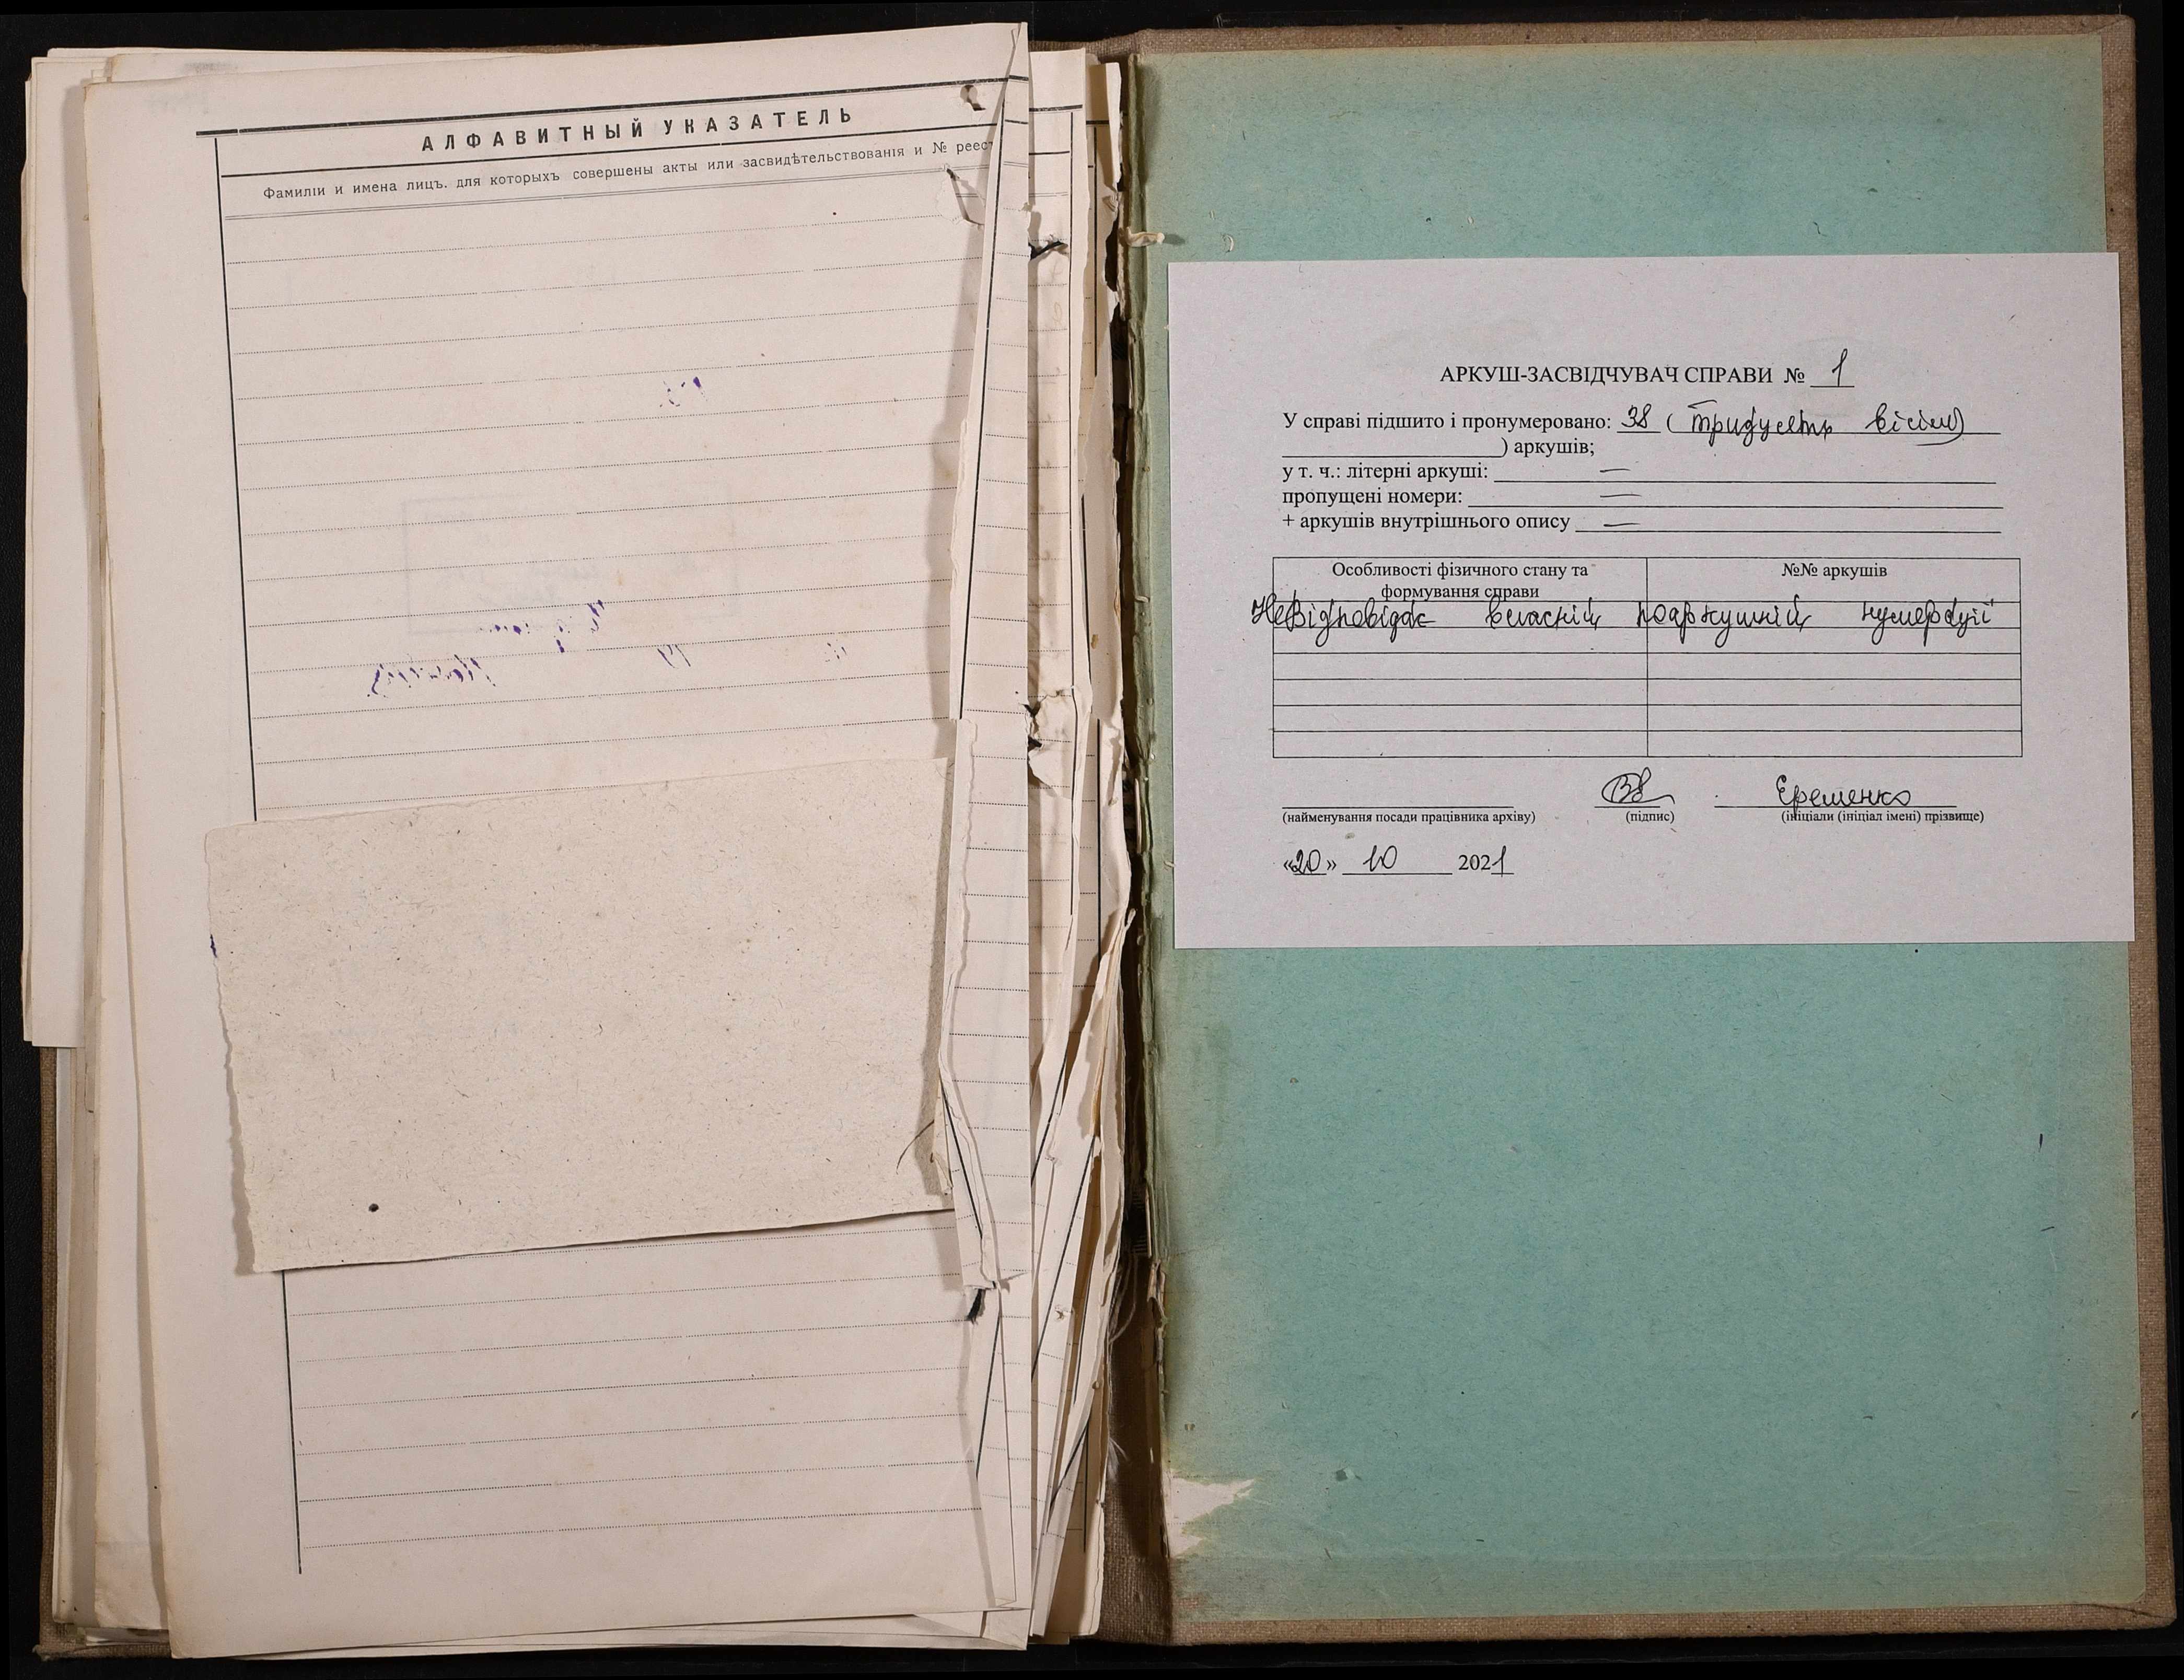 АЛФАВИТНЫЙ УКАЗАТЕЛЬ
Фамиліи и имена лицъ. для которыхъ совершены акты или засвидѣтельствованія и № реест
АРКУШ-ЗАСВІДЧУВАЧ СПРАВИ № 1
У справі підшито і пронумеровано: 38 ( тридцять вісім)
) аркушів;
у т. ч.: літерні аркуші: —
пропущені номери: —
+ аркушів внутрішнього опису —
Особливості фізичного стану та формування справи
№№ аркушів
Невідповідає власній поаркушній нумерації
Єрешенко
(найменування посади працівника архіву) (підпис) (ініціали (ініціал імені) прізвище)
«20» 10 2021